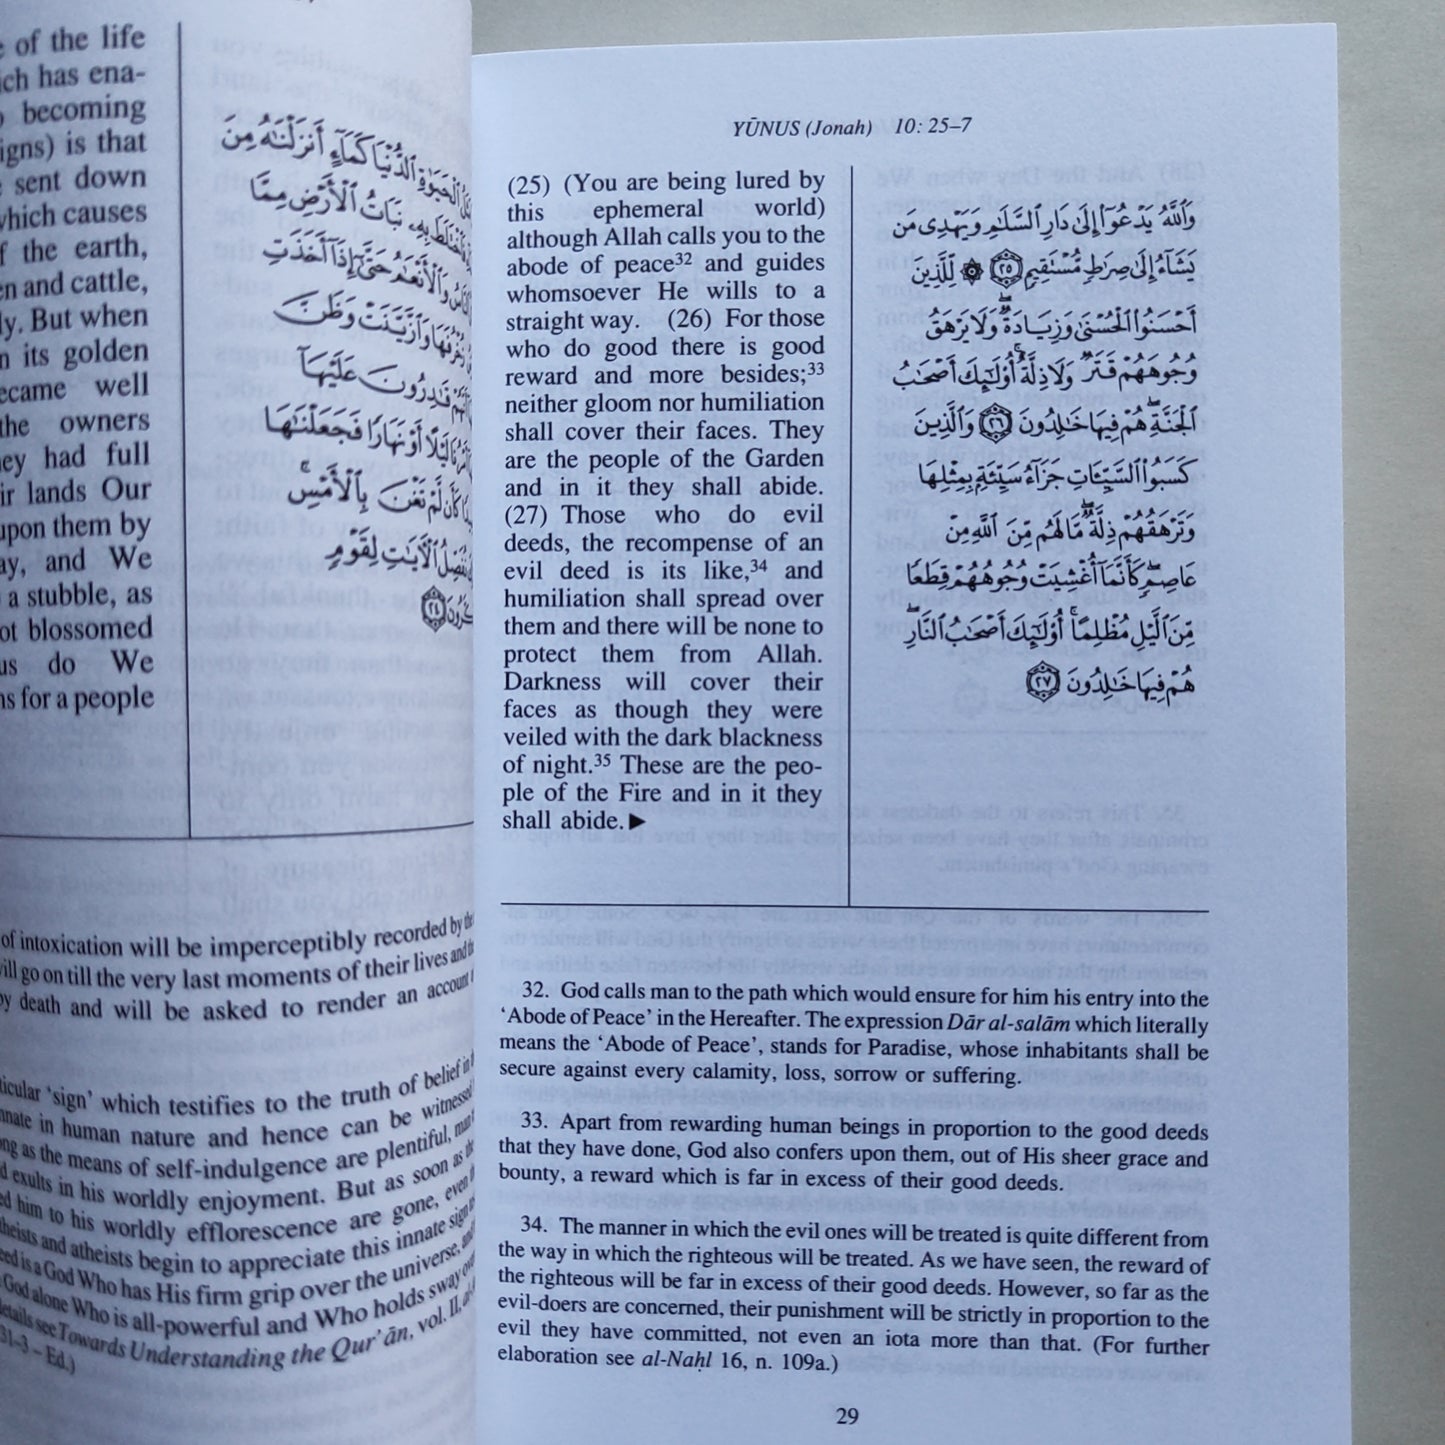 of the life
has ena-
becoming
is that
sent down
which causes
the earth,
and cattle,
But when
its golden
became well
the owners
had full
lands Our
upon them by
and We
a stubble, as
blossomed
do We
for a people
أَنزَلْنَٰهُ مِنَ
نَبَاتُ ٱلْأَرْضِ مِمَّا
وَٱلْأَنْعَٰمُ حَتَّىٰٓ إِذَآ أَخَذَتِ
وَٱزَّيَّنَتْ وَظَنَّ
قَٰدِرُونَ عَلَيْهَآ
لَيْلًا أَوْ نَهَارًا فَجَعَلْنَٰهَا
كَأَن لَّمْ تَغْنَ بِٱلْأَمْسِ ۚ
ٱلْآيَٰتِ لِقَوْمٍ
٢٤
of intoxication will be imperceptibly recorded by the
will go on till the very last moments of their lives and
by death and will be asked to render an account
'sign' which testifies to the truth of belief in
in human nature and hence can be witnessed
as the means of self-indulgence are plentiful, man
exults in his worldly enjoyment. But as soon as
him to his worldly efflorescence are gone, even
and atheists begin to appreciate this innate sign
is a God Who has His firm grip over the universe,
God alone Who is all-powerful and Who holds sway over
see Towards Understanding the Qur'ān, vol. II,
31–3 – Ed.)
YŪNUS (Jonah) 10: 25–7
(25) (You are being lured by
this ephemeral world)
although Allah calls you to the
abode of peace32 and guides
whomsoever He wills to a
straight way. (26) For those
who do good there is good
reward and more besides;33
neither gloom nor humiliation
shall cover their faces. They
are the people of the Garden
and in it they shall abide.
(27) Those who do evil
deeds, the recompense of an
evil deed is its like,34 and
humiliation shall spread over
them and there will be none to
protect them from Allah.
Darkness will cover their
faces as though they were
veiled with the dark blackness
of night.35 These are the peo-
ple of the Fire and in it they
shall abide.►
وَٱللَّهُ يَدْعُوٓا۟ إِلَىٰ دَارِ ٱلسَّلَٰمِ وَيَهْدِى مَن
يَشَآءُ إِلَىٰ صِرَٰطٍ مُّسْتَقِيمٍ ٢٥ ۞ لِّلَّذِينَ
أَحْسَنُوا۟ ٱلْحُسْنَىٰ وَزِيَادَةٌ ۖ وَلَا يَرْهَقُ
وُجُوهَهُمْ قَتَرٌ وَلَا ذِلَّةٌ ۚ أُو۟لَٰٓئِكَ أَصْحَٰبُ
ٱلْجَنَّةِ ۖ هُمْ فِيهَا خَٰلِدُونَ ٢٦ وَٱلَّذِينَ
كَسَبُوا۟ ٱلسَّيِّـَٔاتِ جَزَآءُ سَيِّئَةٍۭ بِمِثْلِهَا
وَتَرْهَقُهُمْ ذِلَّةٌ ۖ مَّا لَهُم مِّنَ ٱللَّهِ مِنْ
عَاصِمٍ ۖ كَأَنَّمَآ أُغْشِيَتْ وُجُوهُهُمْ قِطَعًا
مِّنَ ٱلَّيْلِ مُظْلِمًا ۚ أُو۟لَٰٓئِكَ أَصْحَٰبُ ٱلنَّارِ ۖ
هُمْ فِيهَا خَٰلِدُونَ ٢٧
32. God calls man to the path which would ensure for him his entry into the
'Abode of Peace' in the Hereafter. The expression Dār al-salām which literally
means the 'Abode of Peace', stands for Paradise, whose inhabitants shall be
secure against every calamity, loss, sorrow or suffering.
33. Apart from rewarding human beings in proportion to the good deeds
that they have done, God also confers upon them, out of His sheer grace and
bounty, a reward which is far in excess of their good deeds.
34. The manner in which the evil ones will be treated is quite different from
the way in which the righteous will be treated. As we have seen, the reward of
the righteous will be far in excess of their good deeds. However, so far as the
evil-doers are concerned, their punishment will be strictly in proportion to the
evil they have committed, not even an iota more than that. (For further
elaboration see al-Naḥl 16, n. 109a.)
29